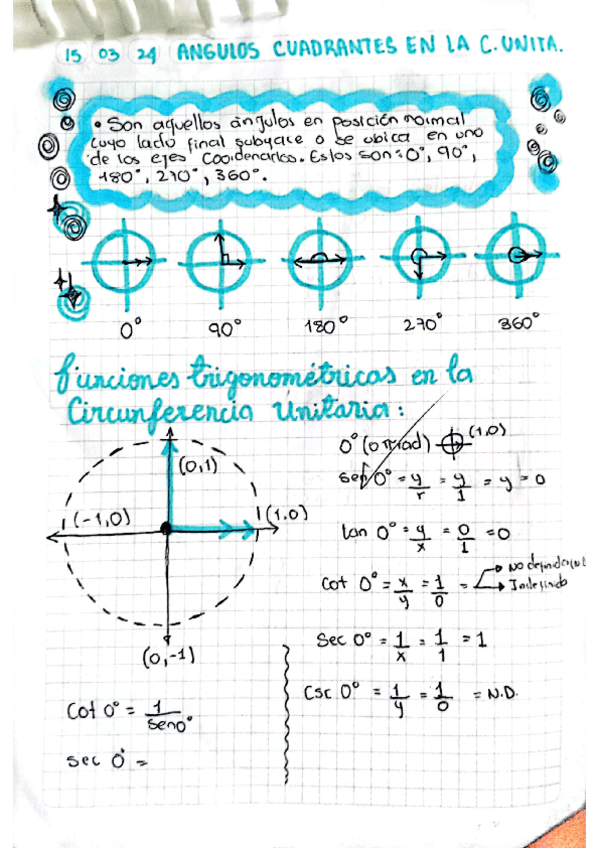 15 03 24 ANGULOS CUADRANTES EN LA C. UNITA.
• Son aquellos angulos en posición normal
cuyo lado final subyace o se ubica en uno
de los ejes Coordenarlos. Estos son: 0°, 90°,
180°, 270°, 360°.
0° 90° 180° 270° 360°
funciones trigonométricas en la
Circunferencia Unitaria:
(0,1)
(-1,0)
(1,0)
(0,-1)
Cot 0° = 1/sen0°
sec 0° =
0° (0 π rad) (1,0)
sen 0° = y/r = y/1 = y = 0
tan 0° = y/x = 0/1 = 0
cot 0° = x/y = 1/0 = No definido
Indefinido
Sec 0° = 1/x = 1/1 = 1
Csc 0° = 1/y = 1/0 = N.D.